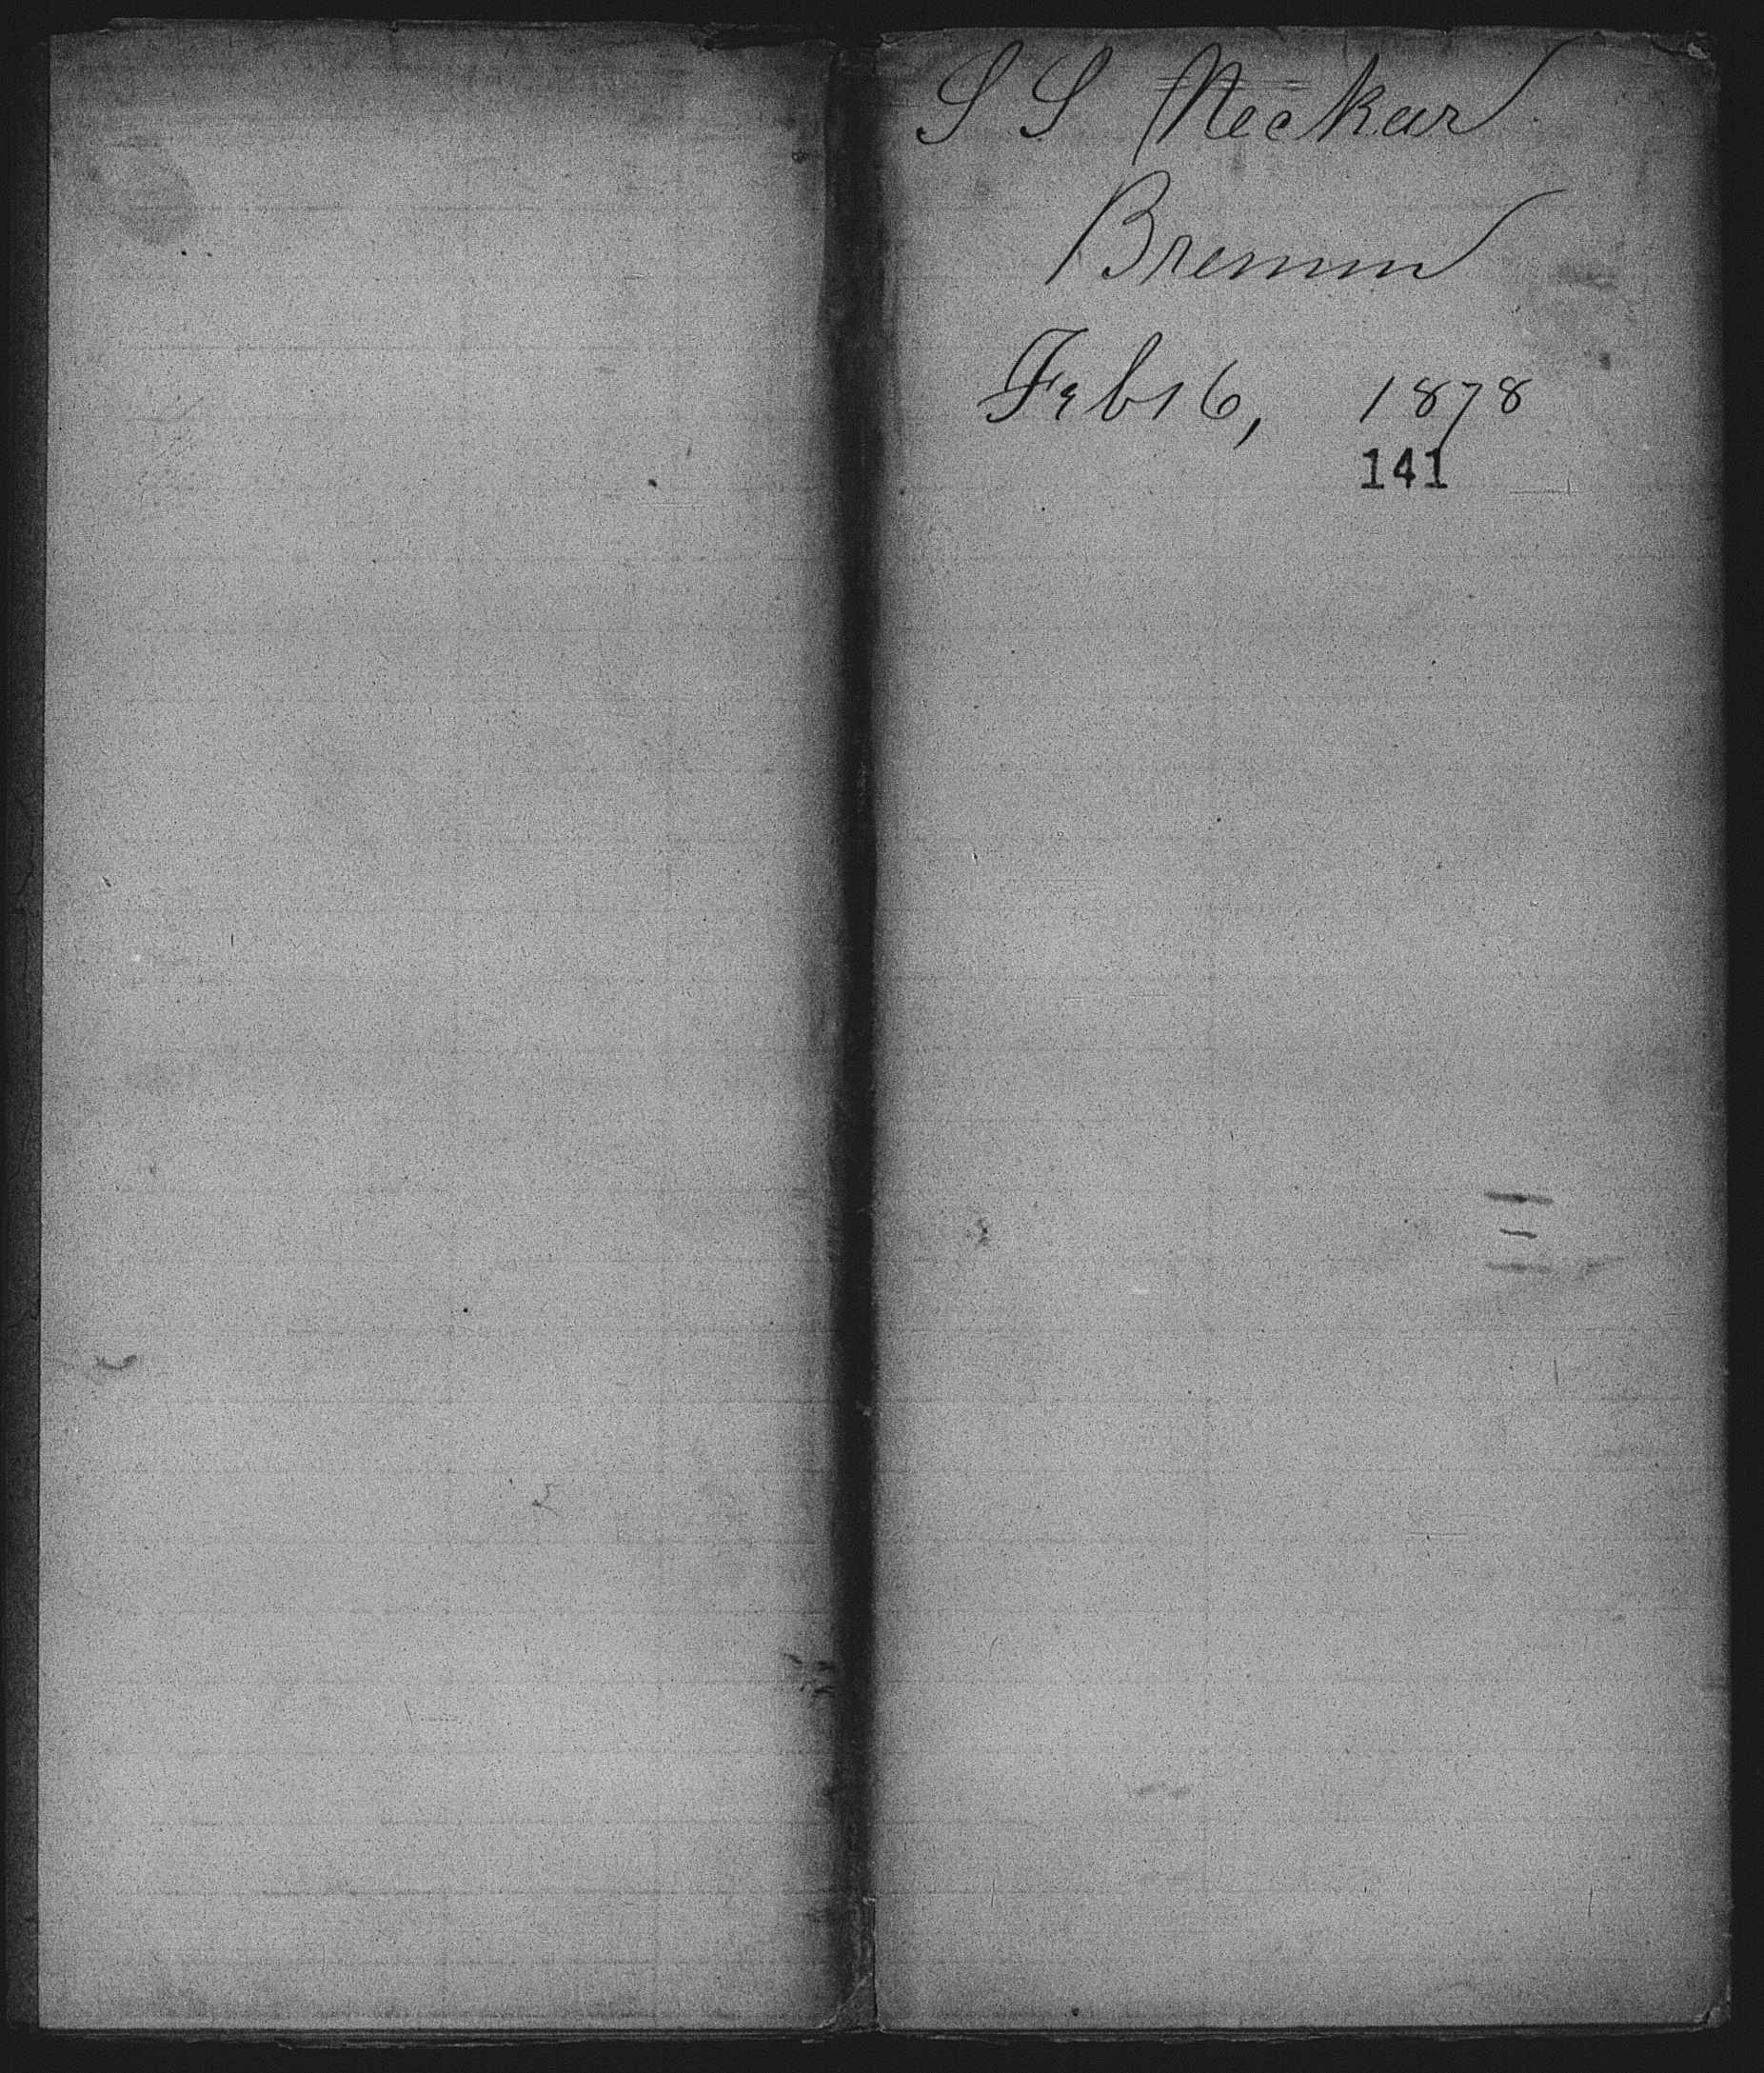 S S Neckar
Bremen
Feb 16, 1878
141